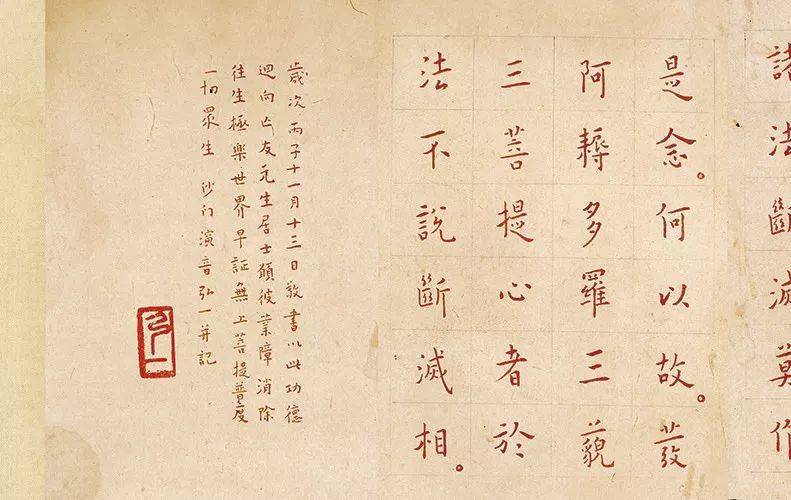 諸法斷滅莫作
是念。何以故。發
阿耨多羅三藐
三菩提心者於
法不說斷滅相。
歲次丙子十一月十三日敬書以此功德
迴向亡友元生居士願彼業障消除
往生極樂世界早証無上菩提普度
一切眾生 沙門演音弘一并記
弘一